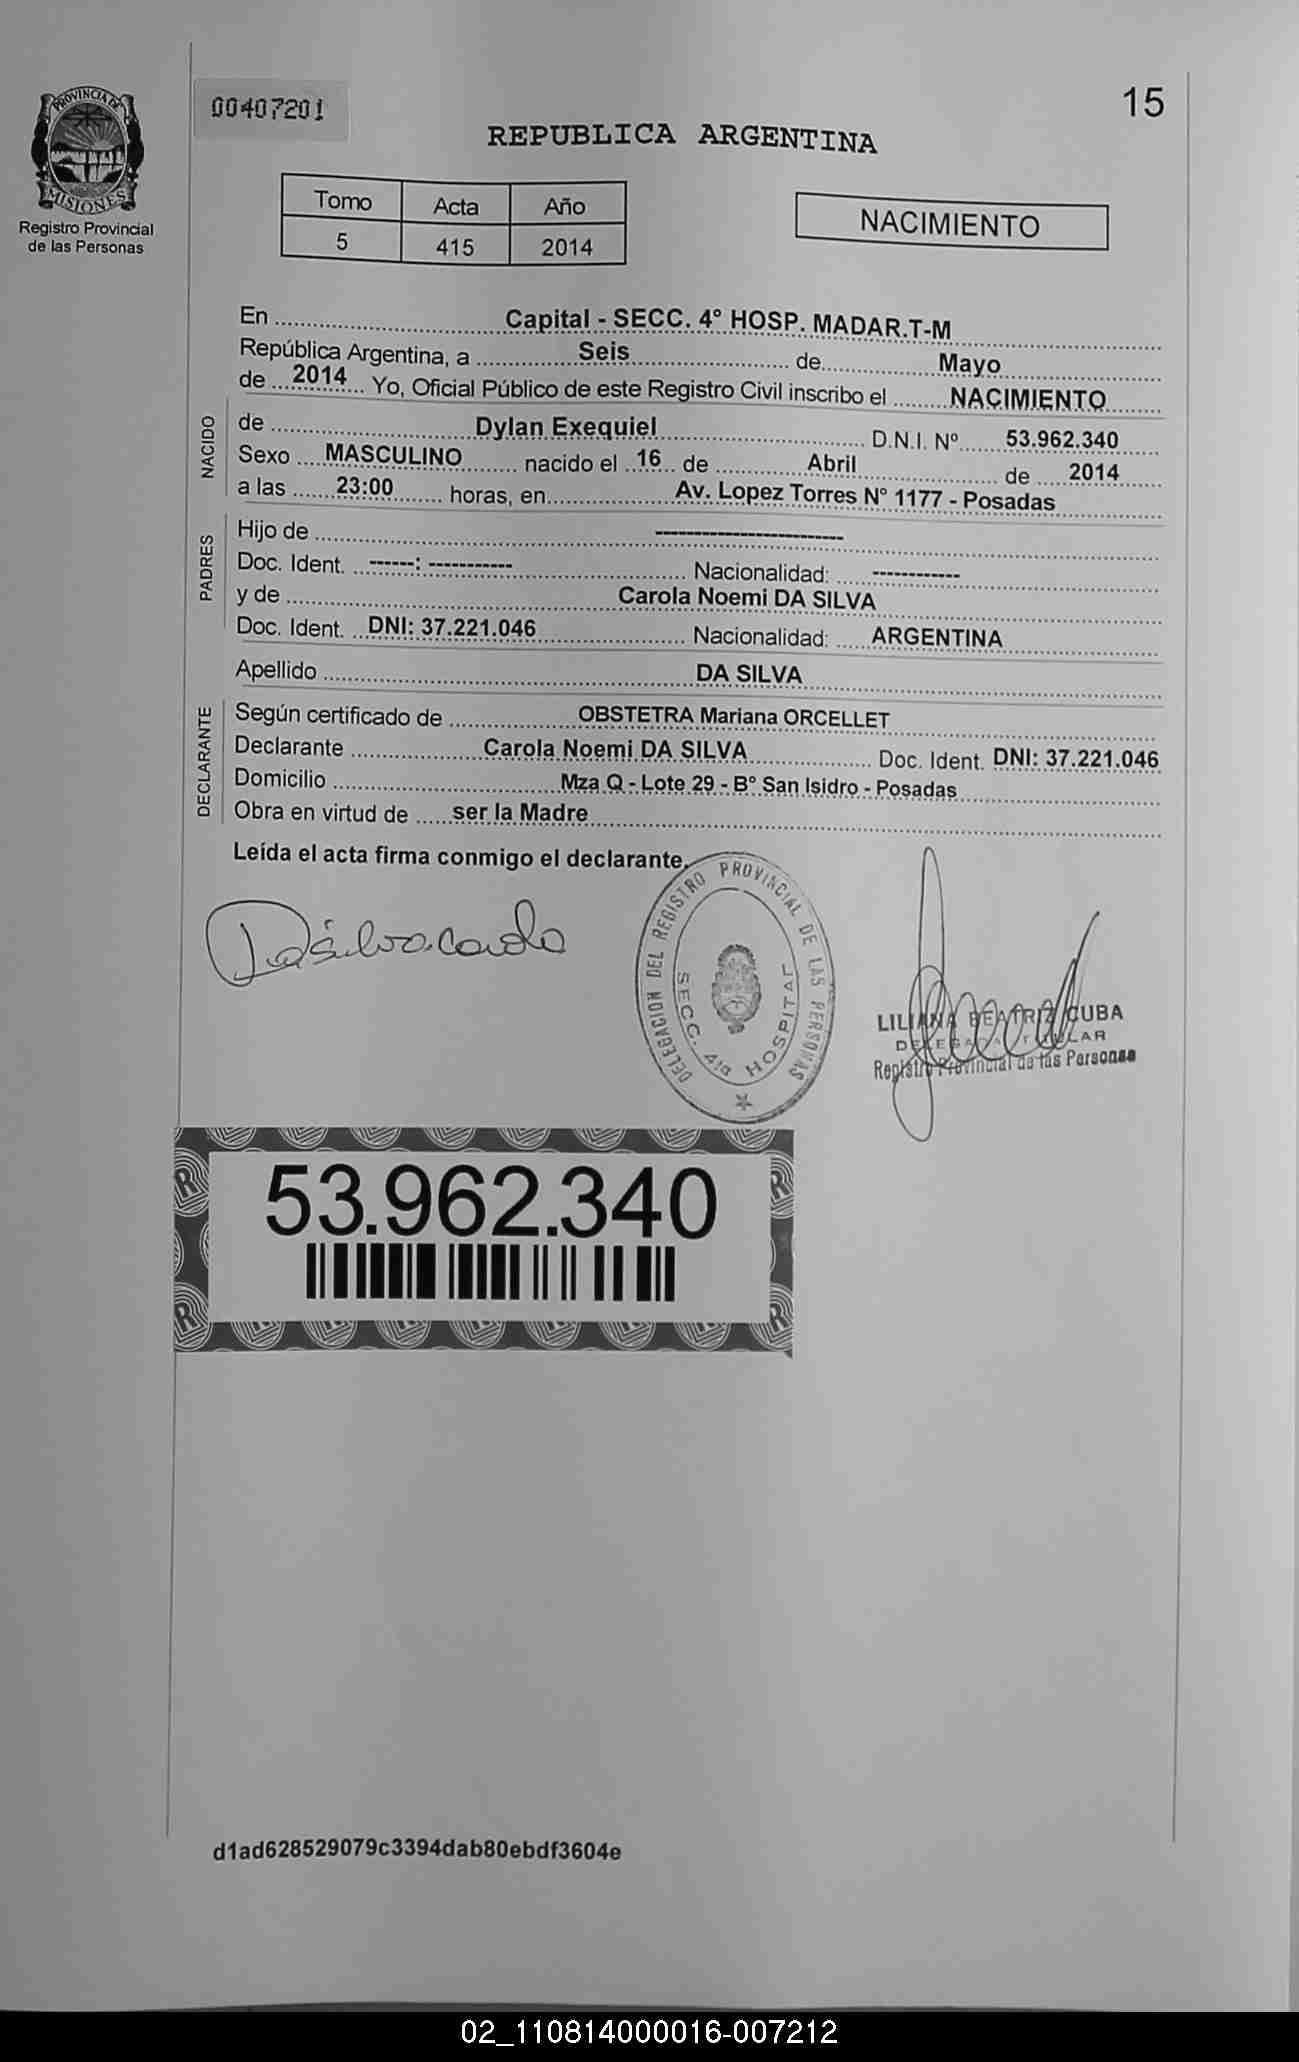 PROVINCIA DE
MISIONES
Registro Provincial
de las Personas
00407201
15
REPUBLICA ARGENTINA
Tomo Acta Año
5 415 2014
NACIMIENTO
En Capital - SECC. 4° HOSP. MADAR.T-M
República Argentina, a Seis de Mayo
de 2014 Yo, Oficial Público de este Registro Civil inscribo el NACIMIENTO
NACIDO
de Dylan Exequiel D.N.I. Nº 53.962.340
Sexo MASCULINO nacido el 16 de Abril de 2014
a las 23:00 horas, en Av. Lopez Torres N° 1177 - Posadas
PADRES
Hijo de -------------------------
Doc. Ident. ------: ----------- Nacionalidad: ------------
y de Carola Noemi DA SILVA
Doc. Ident. DNI: 37.221.046 Nacionalidad: ARGENTINA
Apellido DA SILVA
DECLARANTE
Según certificado de OBSTETRA Mariana ORCELLET
Declarante Carola Noemi DA SILVA Doc. Ident. DNI: 37.221.046
Domicilio Mza Q - Lote 29 - B° San Isidro - Posadas
Obra en virtud de ser la Madre
Leída el acta firma conmigo el declarante.
Da silva carola
DELEGACION DEL REGISTRO PROVINCIAL DE LAS PERSONAS
SECC. 4ta HOSPITAL
LILIANA BEATRIZ CUBA
DELEGADA TITULAR
Registro Provincial de las Personas
53.962.340
d1ad628529079c3394dab80ebdf3604e
02_110814000016-007212